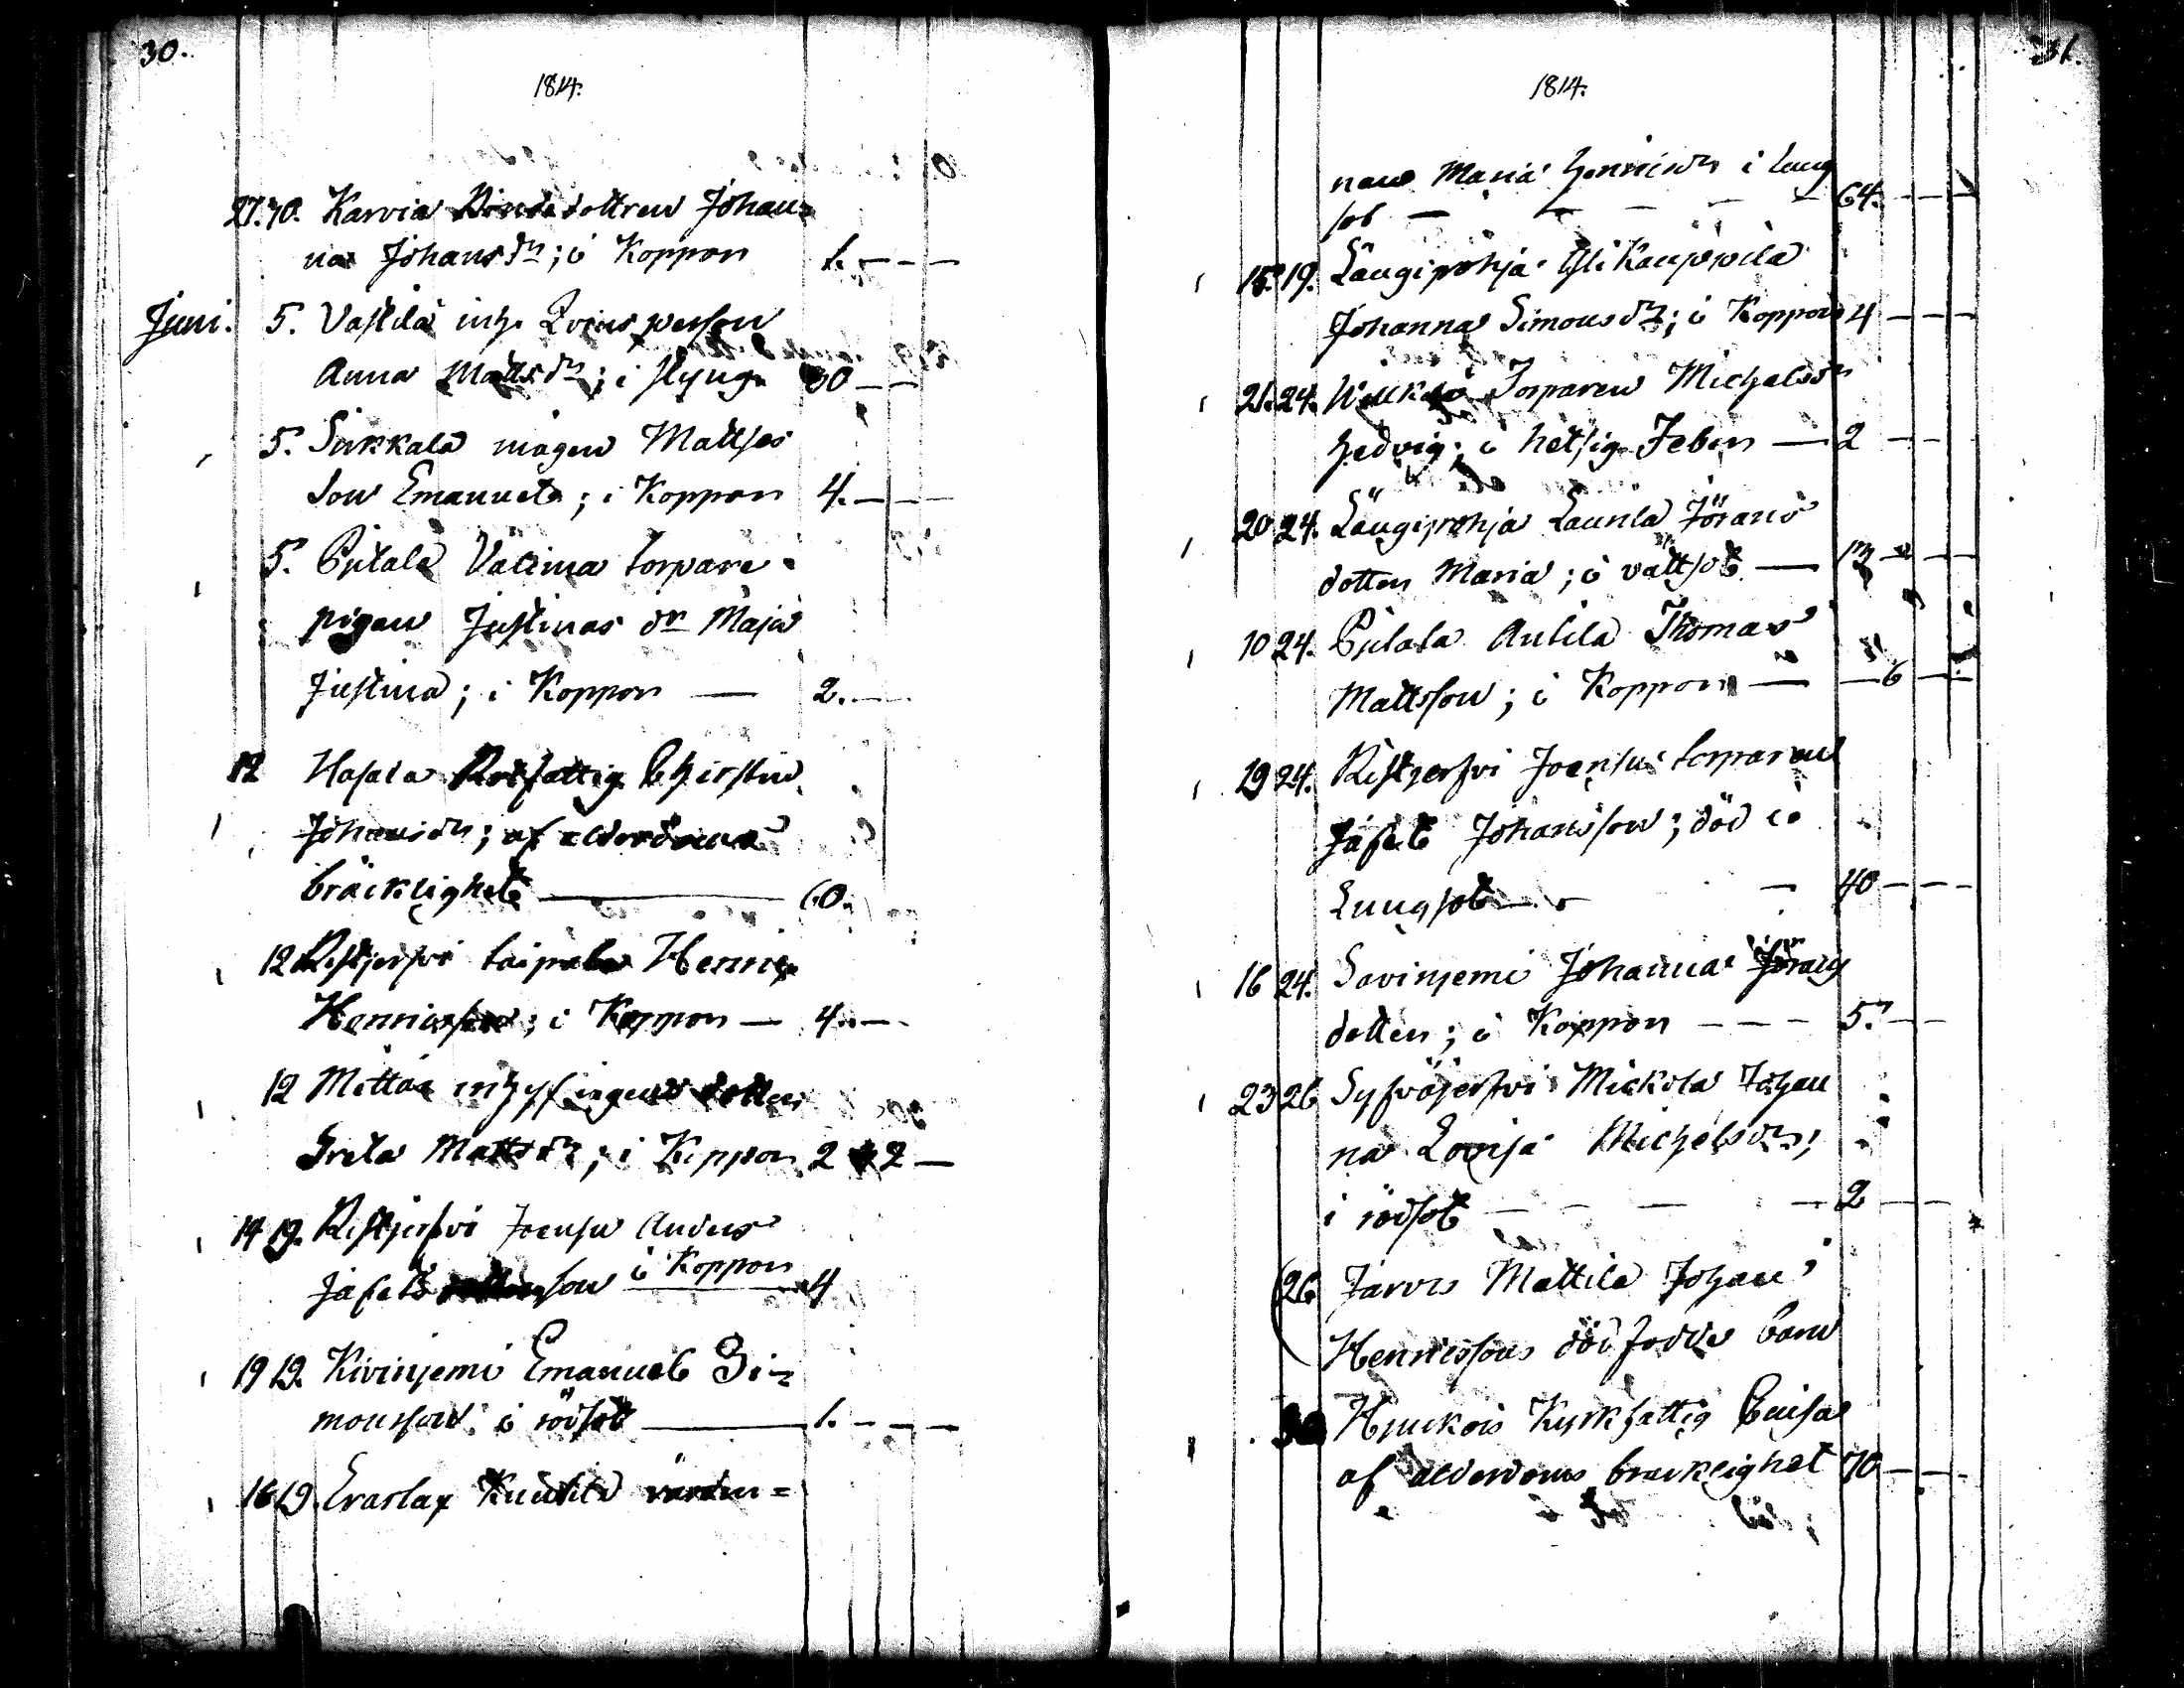 30.
1814.
27. 30. Karvia Bondedottren Johan=
na Johans dr; i Koppor 1. - - -
Juni. 5. Vastila inh. Qvins person
Anna Matts dr; i 30 - -
5. Sirkkala mågen Mattses
Son Emanuel; i Koppor 4. - - -
5. Pjelala Välima torpare
pigan Justinas dr Maja
Justina; i Koppor — 2. - -
12 Hajala Rotfattig Christin
Johans dr; af ålderdoms
bräcklighet — 60.
12 Kistjerfvi taipale Henric
Henricsson; i Koppor — 4. - -
12 Mettäi inhysingens dotter
Greta Matts dr; i Koppor 2 2 —
14 19. Kistjerfvi Joensu Anders
Jafets son i Koppor 4
19 19. Kivinjemi Emanuel Si=
monsson i rödsot — 1. - - -
16 19. Evarlax Knuttila värdin=
31.
1814.
nan Maria Henrics dr i lung
sot — — — — 64. - - -
15. 19. Längipohja Yli Kauppila
Johanna Simons dr; i Koppor 4 - - -
21. 24. Torparen Michels dr
Hedvig; i hetsig Feber — 2 - -
20 24. Längipohja Launla Jörans
dotter Maria; i vattsot — 13 - - -
10 24. Pjelala Anttila Thomas
Mattsson; i Koppor — - 6 - -
19 24. Kistjerfvi Joensu torparen
Jafet Johansson; död i
Lungsot — — 40 - - -
16 24. Savinjemi Johanna Jörans
dotter; i Koppor - - - 5. - -
23 26 Syfväjerfvi Mickola Johan
na Lovisa Michels dr;
i rödsot — — — — 2 - -
26 Jarvis Mattila Johan
Henricssons död födde barn
30 Kyrkfattig Caisa
af ålderdoms bräcklighet 70 - - -